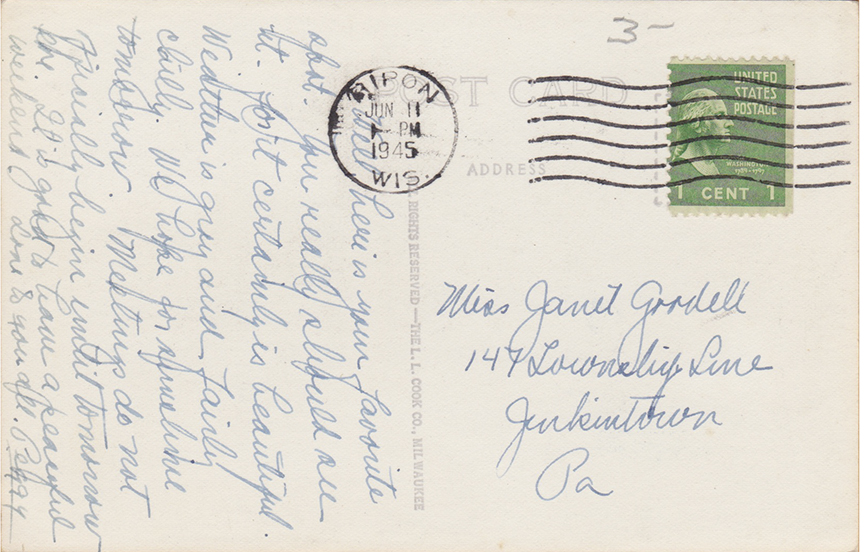 3-
POST CARD
RIPON
JUN 11
PM
1945
WIS.
UNITED
STATES
POSTAGE
WASHINGTON
1789-1797
1 CENT 1
ADDRESS
Well here is your favorite
spot. You really should see
it. For it certainly is beautiful.
Weather is gray and fairly
chilly. We hope for sunshine
tomorrow. Meetings do not
officially begin until tomorrow
It is good to have a peaceful
weekend. Love to you all. Peggy
RIGHTS RESERVED—THE L. L. COOK CO., MILWAUKEE
Miss Janet Goodell
147 Township Line
Jenkintown
Pa